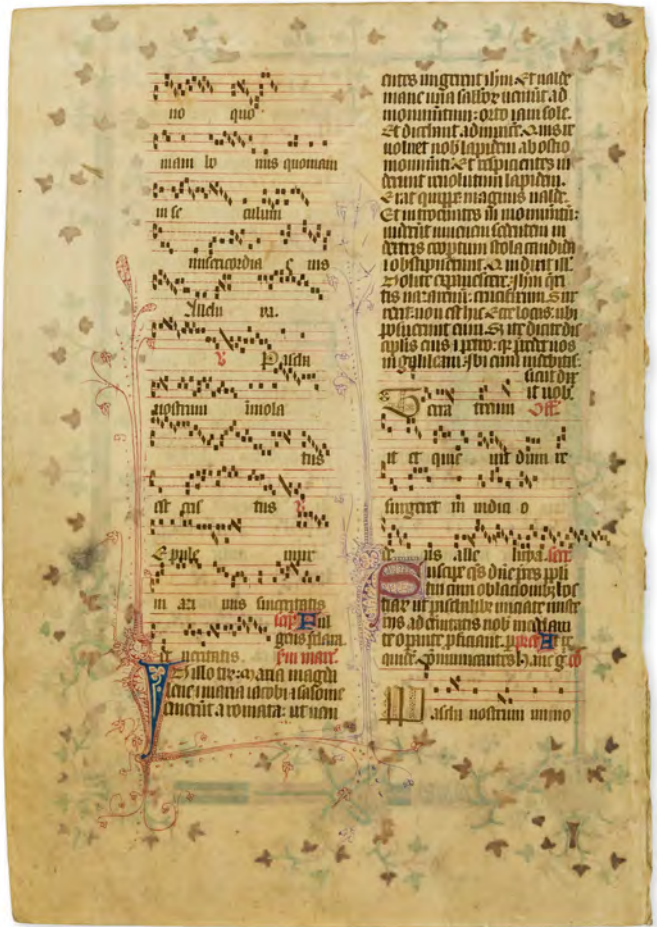 no quo
niam bo nus quoniam
in se culum
misericordia e ius
Alleluya.
v Pascha
nostrum imola
tus
est cris tus v
Epule mur
in azi mis sinceritatis
Ful
et veritatis.
In illo tpr. Maria magda
lene maria iacobi salome
emerut aromata: ut veni
entes ungerent ihm Et valde
mane una sabbor veniut ad
monumentum: orto iam sole.
Et dicebant adinvice. Quis re
volvet nob lapidem ab ostio
monumti: Et respicientes vi
derunt revolutum lapidem.
Erat quippe magnus valde.
Et introeuntes in monumtu:
viderut iuvenem sedentem in
dextris coopertum stola candida
obstupuerunt. Qui dixit ill
Nolite expavescere. Ihm que
ritis nazarenu: crucifixum. Sur
rexit: non est hic. Ecce locus: ubi
posuerunt eum. Et ite dicite dis
cipulis eius petro: qr precedet vos
in galyleam: Ibi eum videbitis:
sicut dix
it vob.
Terra tremu Off.
it et quie vit dum re
surgeret in iudicio
de us alle luya. secr.
Suscipe qs dne pres ppli
tui cum oblacionib hos
Et
quie. Comunicantes Hanc g. co
Pascha nostrum immo